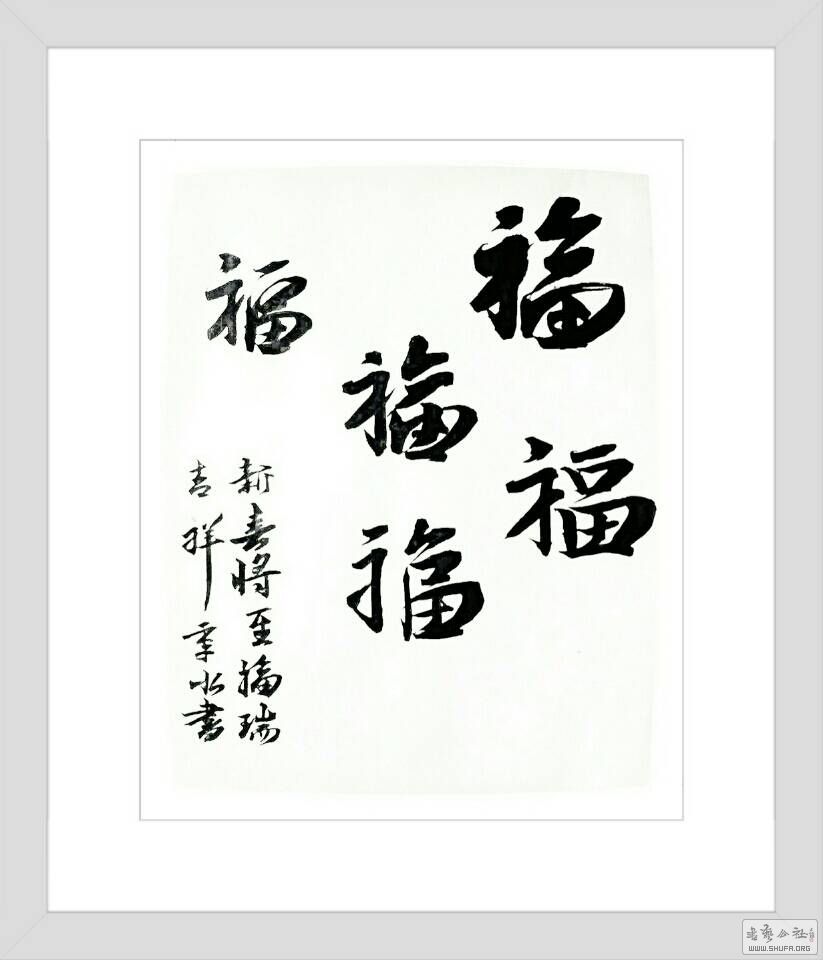 福
福
福
福
福
新春將至福瑞
吉祥季水書
書藝公社
WWW.SHUFA.ORG